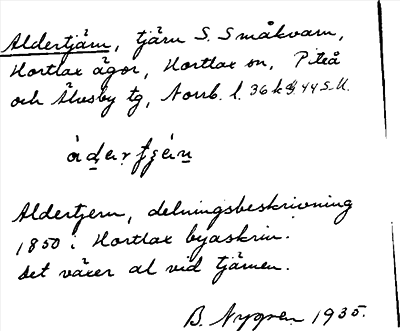 Aldertjärn, tjärn S. Småkvarn,
Hortlax ägor, Hortlax sn, Piteå
och Älvsby tg, Norrb. l. 36 k
Aldertjern, delningsbeskrivning
1850 i Hortlax byaskrin.
Det växer al vid tjärnen.
B. Nygren 1935.